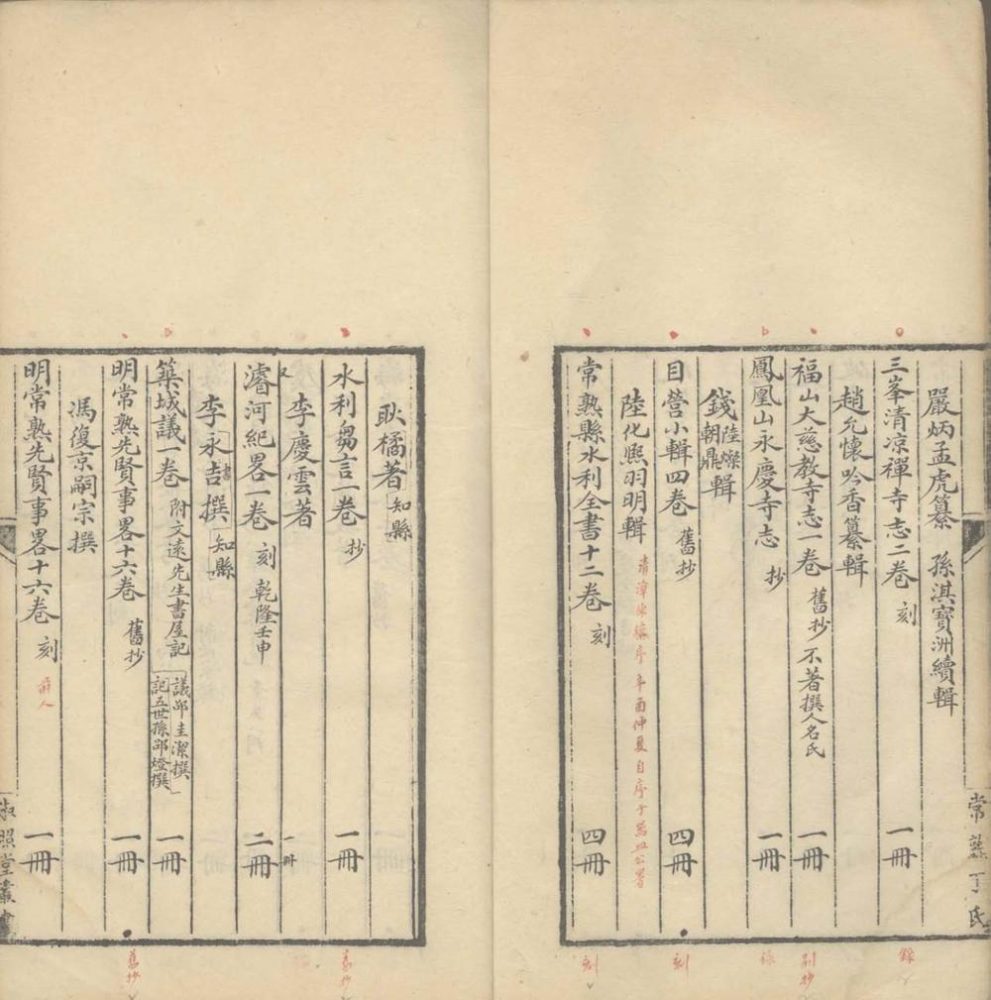 嚴炳孟虎纂　孫淇寶洲續輯
三峯清涼禪寺志二卷　刻　一冊
趙允懷吟香纂輯
福山大慈教寺志一卷　舊抄不著撰人名氏　一冊
鳳凰山永慶寺志　抄　一冊
錢陸燦朝鼎輯
目營小輯四卷　舊抄　四冊
陸化熙羽明輯
序辛酉仲夏自序于
常熟縣水利全書十二卷　刻　四冊
常熟丁氏
耿橘著　知縣
水利芻言一卷　抄　一冊
李慶雲著
濬河紀畧一卷　刻　乾隆壬申　二冊
一冊
李永吉撰　知縣
築城議一卷　附文遠先生書屋記　議邵圭潔撰　記五世孫邵燈撰　一冊
明常熟先賢事畧十六卷　舊抄　一冊
馮復京嗣宗撰
明常熟先賢事畧十六卷　刻　一冊
淑照堂叢書
錄
刻
刻
舊抄